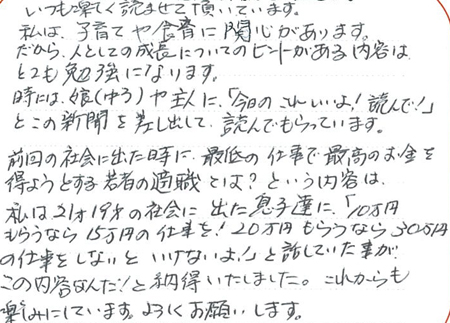 いつも楽しく読ませて頂いています。
私は、子育てや食育に関心があります。
だから、人としての成長についてのヒントがある内容は
とても勉強になります。
時には、娘(中3)や主人に、「今日のこれいいよ!読んで!」
とこの新聞を差し出して、読んでもらっています。
前回の社会に出た時に、最低の仕事で最高のお金を
得ようとする若者の適職とは?という内容は、
私は21才19才の社会に出た息子達に、「10万円
もらうなら15万円の仕事を!20万円もらうなら30万円
の仕事をしないといけないよ!」と話していた事が
この内容なんだ!と納得いたしました。これからも
楽しみにしています。よろしくお願いします。